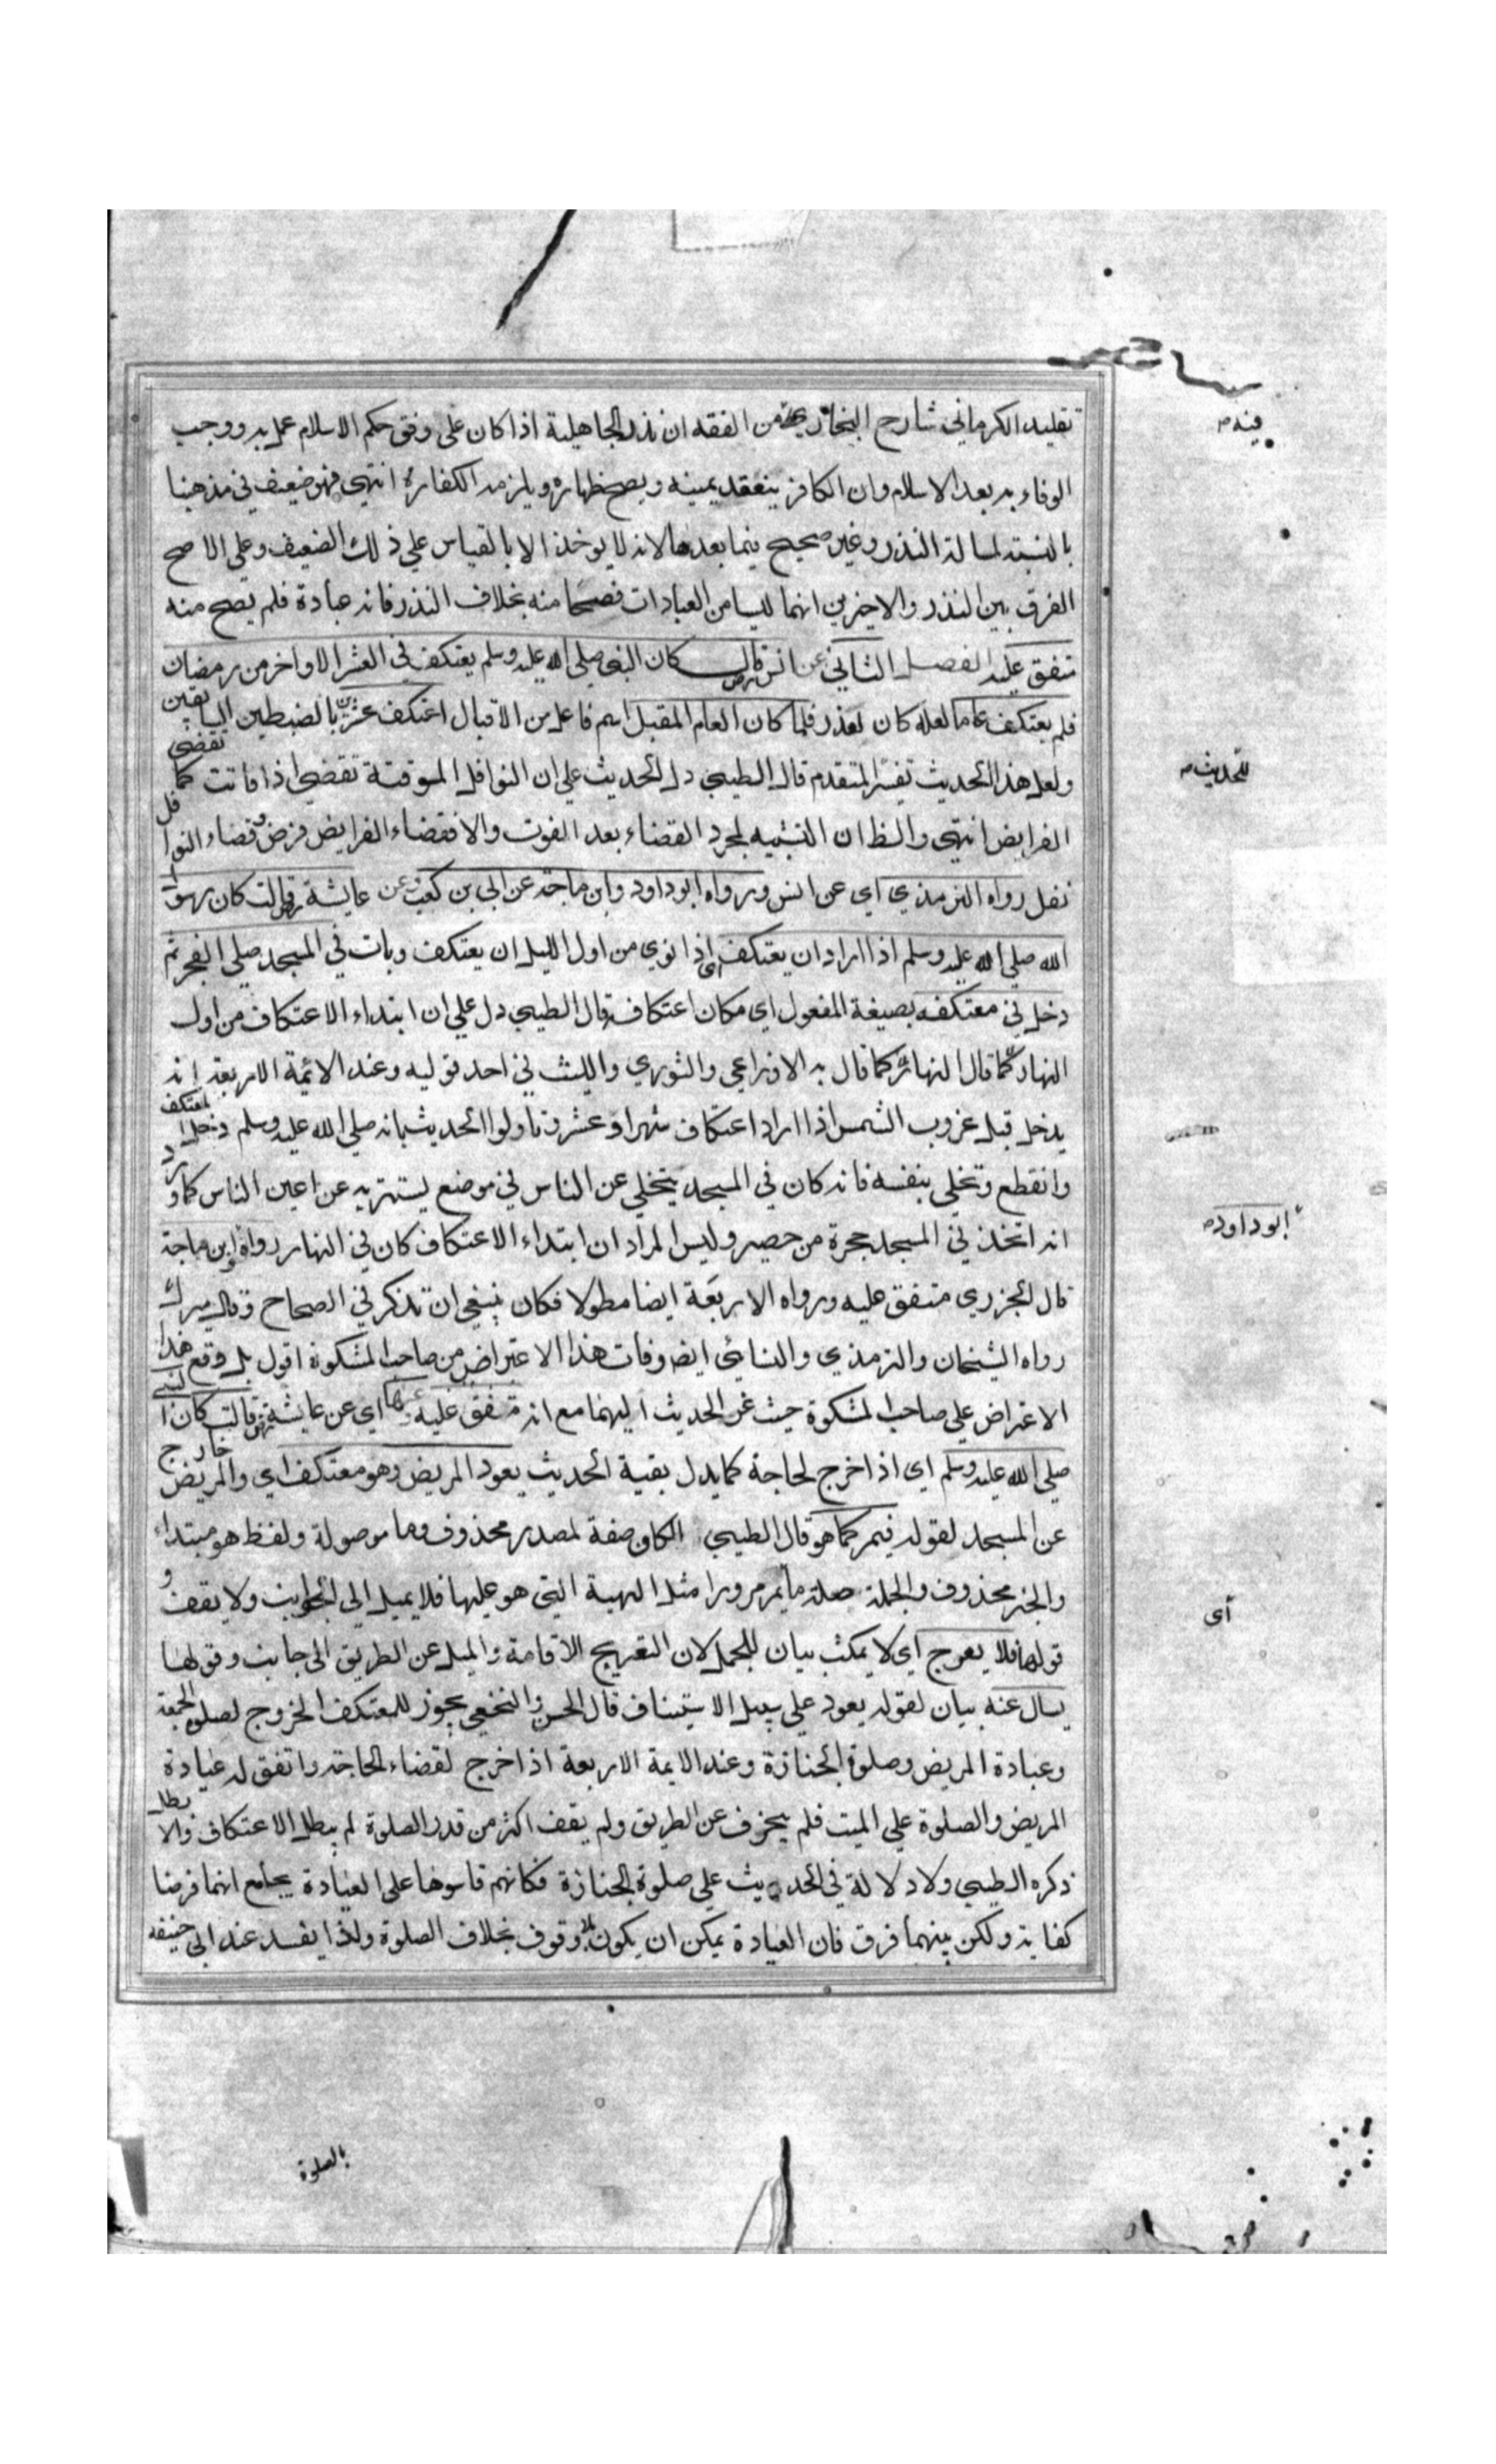 تقليد الكرماني شارح البخاري فيه من الفقه ان نذر الجاهلية اذا كان على وفق حكم الاسلام عمل به ووجب
الوفاء به بعد الاسلام وان الكافر ينعقد يمينه ويصح ظهاره ويلزمه الكفارة انتهى فهو ضعيف في مذهبنا
بالنسبة لمسالة النذر وغير صحيح فيما بعدها لانه لا يوخذ الا بالقياس علي ذلك الضعيف وعلي الاصح
الفرق بين النذر والاخيرين انهما ليسا من العبادات فصحا منه بخلاف النذر فانه عبادة فلم يصح منه
متفق عليه الفصل الثاني عن انس رض قال كان النبي صلي الله عليه وسلم يعتكف في العشر الاواخر من رمضان
فلم يعتكف عاما لعله كان لعذر فلما كان العام المقبل اسم فاعل من الاقبال اعتكف عشرين بالضبطين السابقين
ولعل هذا الحديث تفسير للمتقدم قال الطيبي دل الحديث علي ان النوافل الموقتة تقضي اذا فاتت كما تقضي
الفرايض انتهي والظ ان التشبيه لمجرد القضاء بعد الفوت والا فقضاء الفرايض فرض وقضاء النوافل
نفل رواه الترمذي اي عن انس ورواه ابو داود وابن ماجة عن ابي بن كعب وعن عايشة رض قالت كان رسول
الله صلي الله عليه وسلم اذا اراد ان يعتكف اي اذا نوي من اول الليل ان يعتكف وبات في المسجد صلي الفجر ثم
دخل في معتكفه بصيغة المفعول اي مكان اعتكافه قال الطيبي دل علي ان ابتداء الاعتكاف من اول
النهار كما قال به الاوزاعي والثوري والليث في احد قوليه وعند الائمة الاربعة انه
يدخل قبل غروب الشمس اذا اراد اعتكاف شهر او عشر وتاولوا الحديث بانه صلي الله عليه وسلم دخل المعتكف
وانقطع وتخلي بنفسه فانه كان في المسجد يتخلي عن الناس في موضع يستتر به عن اعين الناس كما ورد
انه اتخذ في المسجد حجرة من حصير وليس المراد ان ابتداء الاعتكاف كان في النهار رواه ابو داود وابن ماجة
قال الجزري متفق عليه ورواه الاربعة ايضا مطولا فكان ينبغي ان تذكر في الصحاح وقال ميرك
رواه الشيخان والترمذي والنسائي ايضا وفات هذا الاعتراض من صاحب المشكوة اقول بل وقع هذا
الاعتراض علي صاحب المشكوة حيث الحديث اليهما مع انه متفق عليه وعنها اي عن عايشة رض قالت كان النبي
صلي الله عليه وسلم اي اذا خرج لحاجة كما يدل بقية الحديث يعود المريض وهو معتكف اي والمريض خارج
عن المسجد لقوله فيمر كما هو قال الطيبي الكاف صفة لمصدر محذوف وما موصولة ولفظ هو مبتداء
والخبر محذوف والجملة صلة ما يمر مرورا مثل الهيئة التي هو عليها فلا يميل الي الجوانب ولا يقف و
قولها فلا يعرج اي لا يمكث بيان للمجمل لان التعريج الاقامة والميل عن الطريق الي جانب وقولها
يسال عنه بيان لقوله يعود علي سبيل الاستيناف قال الحسن والنخعي يجوز للمعتكف الخروج لصلوة الجمعة
وعيادة المريض وصلوة الجنازة وعند الايمة الاربعة اذا خرج لقضاء الحاجة واتفق له عيادة
المريض والصلوة علي الميت فلم ينحرف عن الطريق ولم يقف اكثر من قدر الصلوة لم يبطل الاعتكاف والا بطل
ذكره الطيبي ولا دلالة في الحديث علي صلوة الجنازة فكانهم قاسوها على العيادة بجامع انهما فرضا
كفاية ولكن بينهما فرق فان العيادة يمكن ان يكون بلا وقوف بخلاف الصلوة ولذا يفسد عند ابي حنيفة
للحديث
ابو داود
أى
بالصلوة